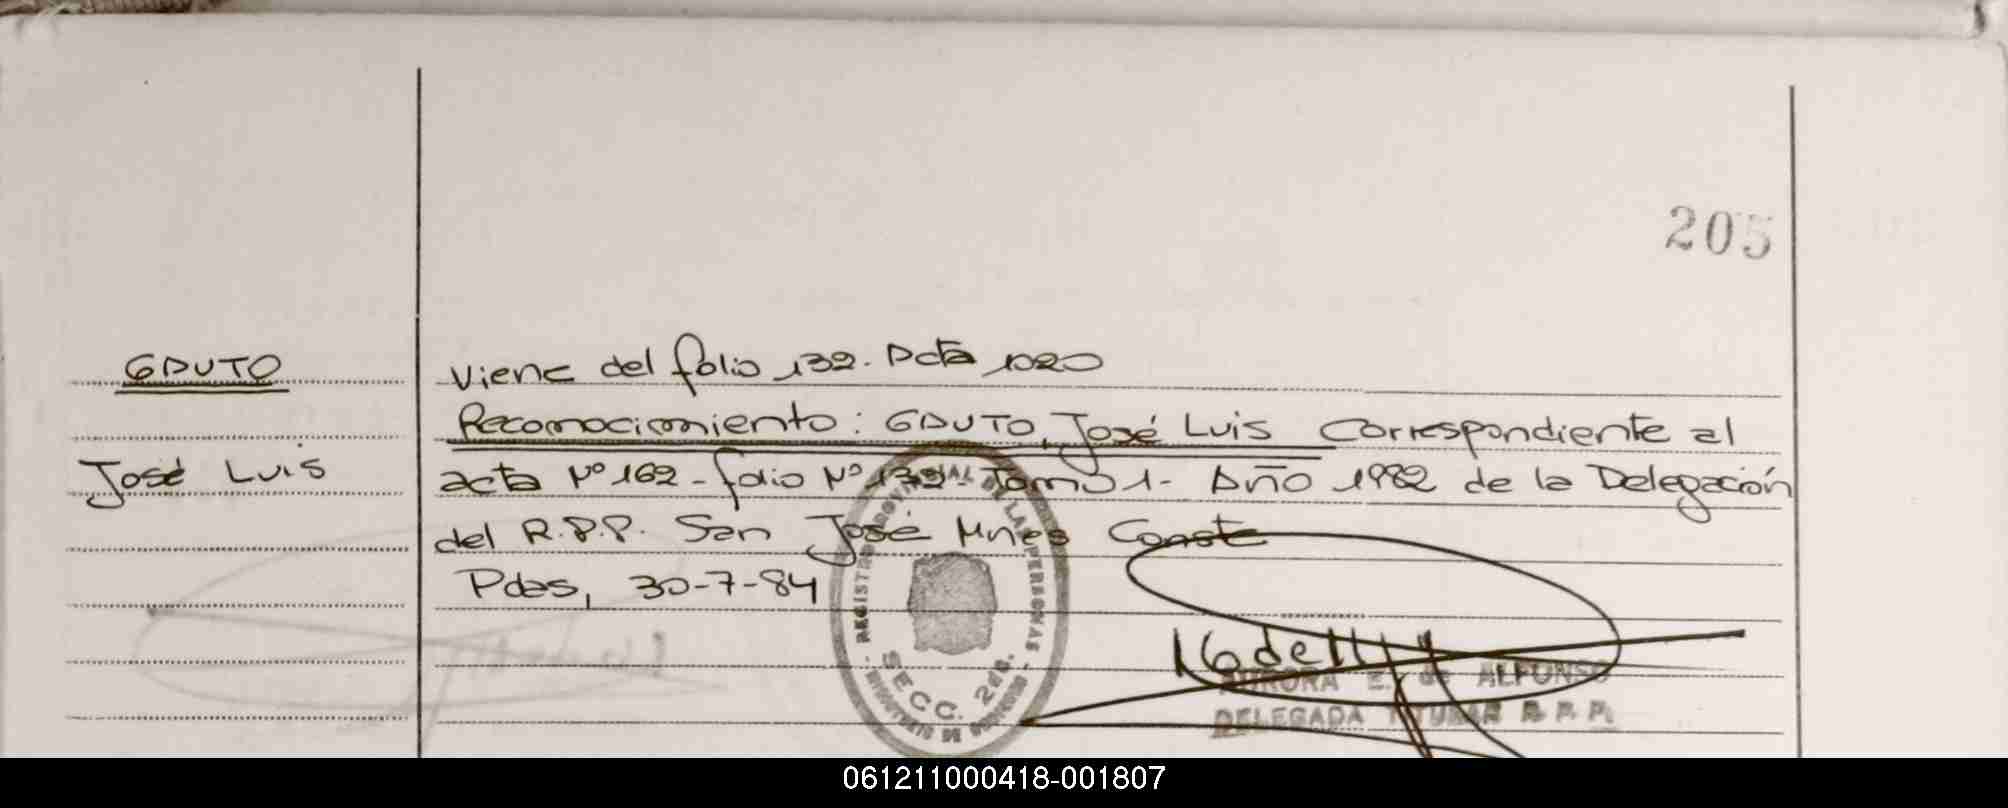 205
GAUTO
Viene del folio 132. Acta 1020
Reconocimiento: GAUTO, José Luis Correspondiente al
José Luis
acta Nº 162 - folio Nº 132 - Tomo 1 - Año 1982 de la Delegación
del R.P.P. San José Mnes Conste
Pdas, 30-7-84
REGISTRO PROVINCIAL DE LAS PERSONAS
SECC. 2da.
AURORA E. de ALFONSO
DELEGADA TITULAR R.P.P.
061211000418-001807